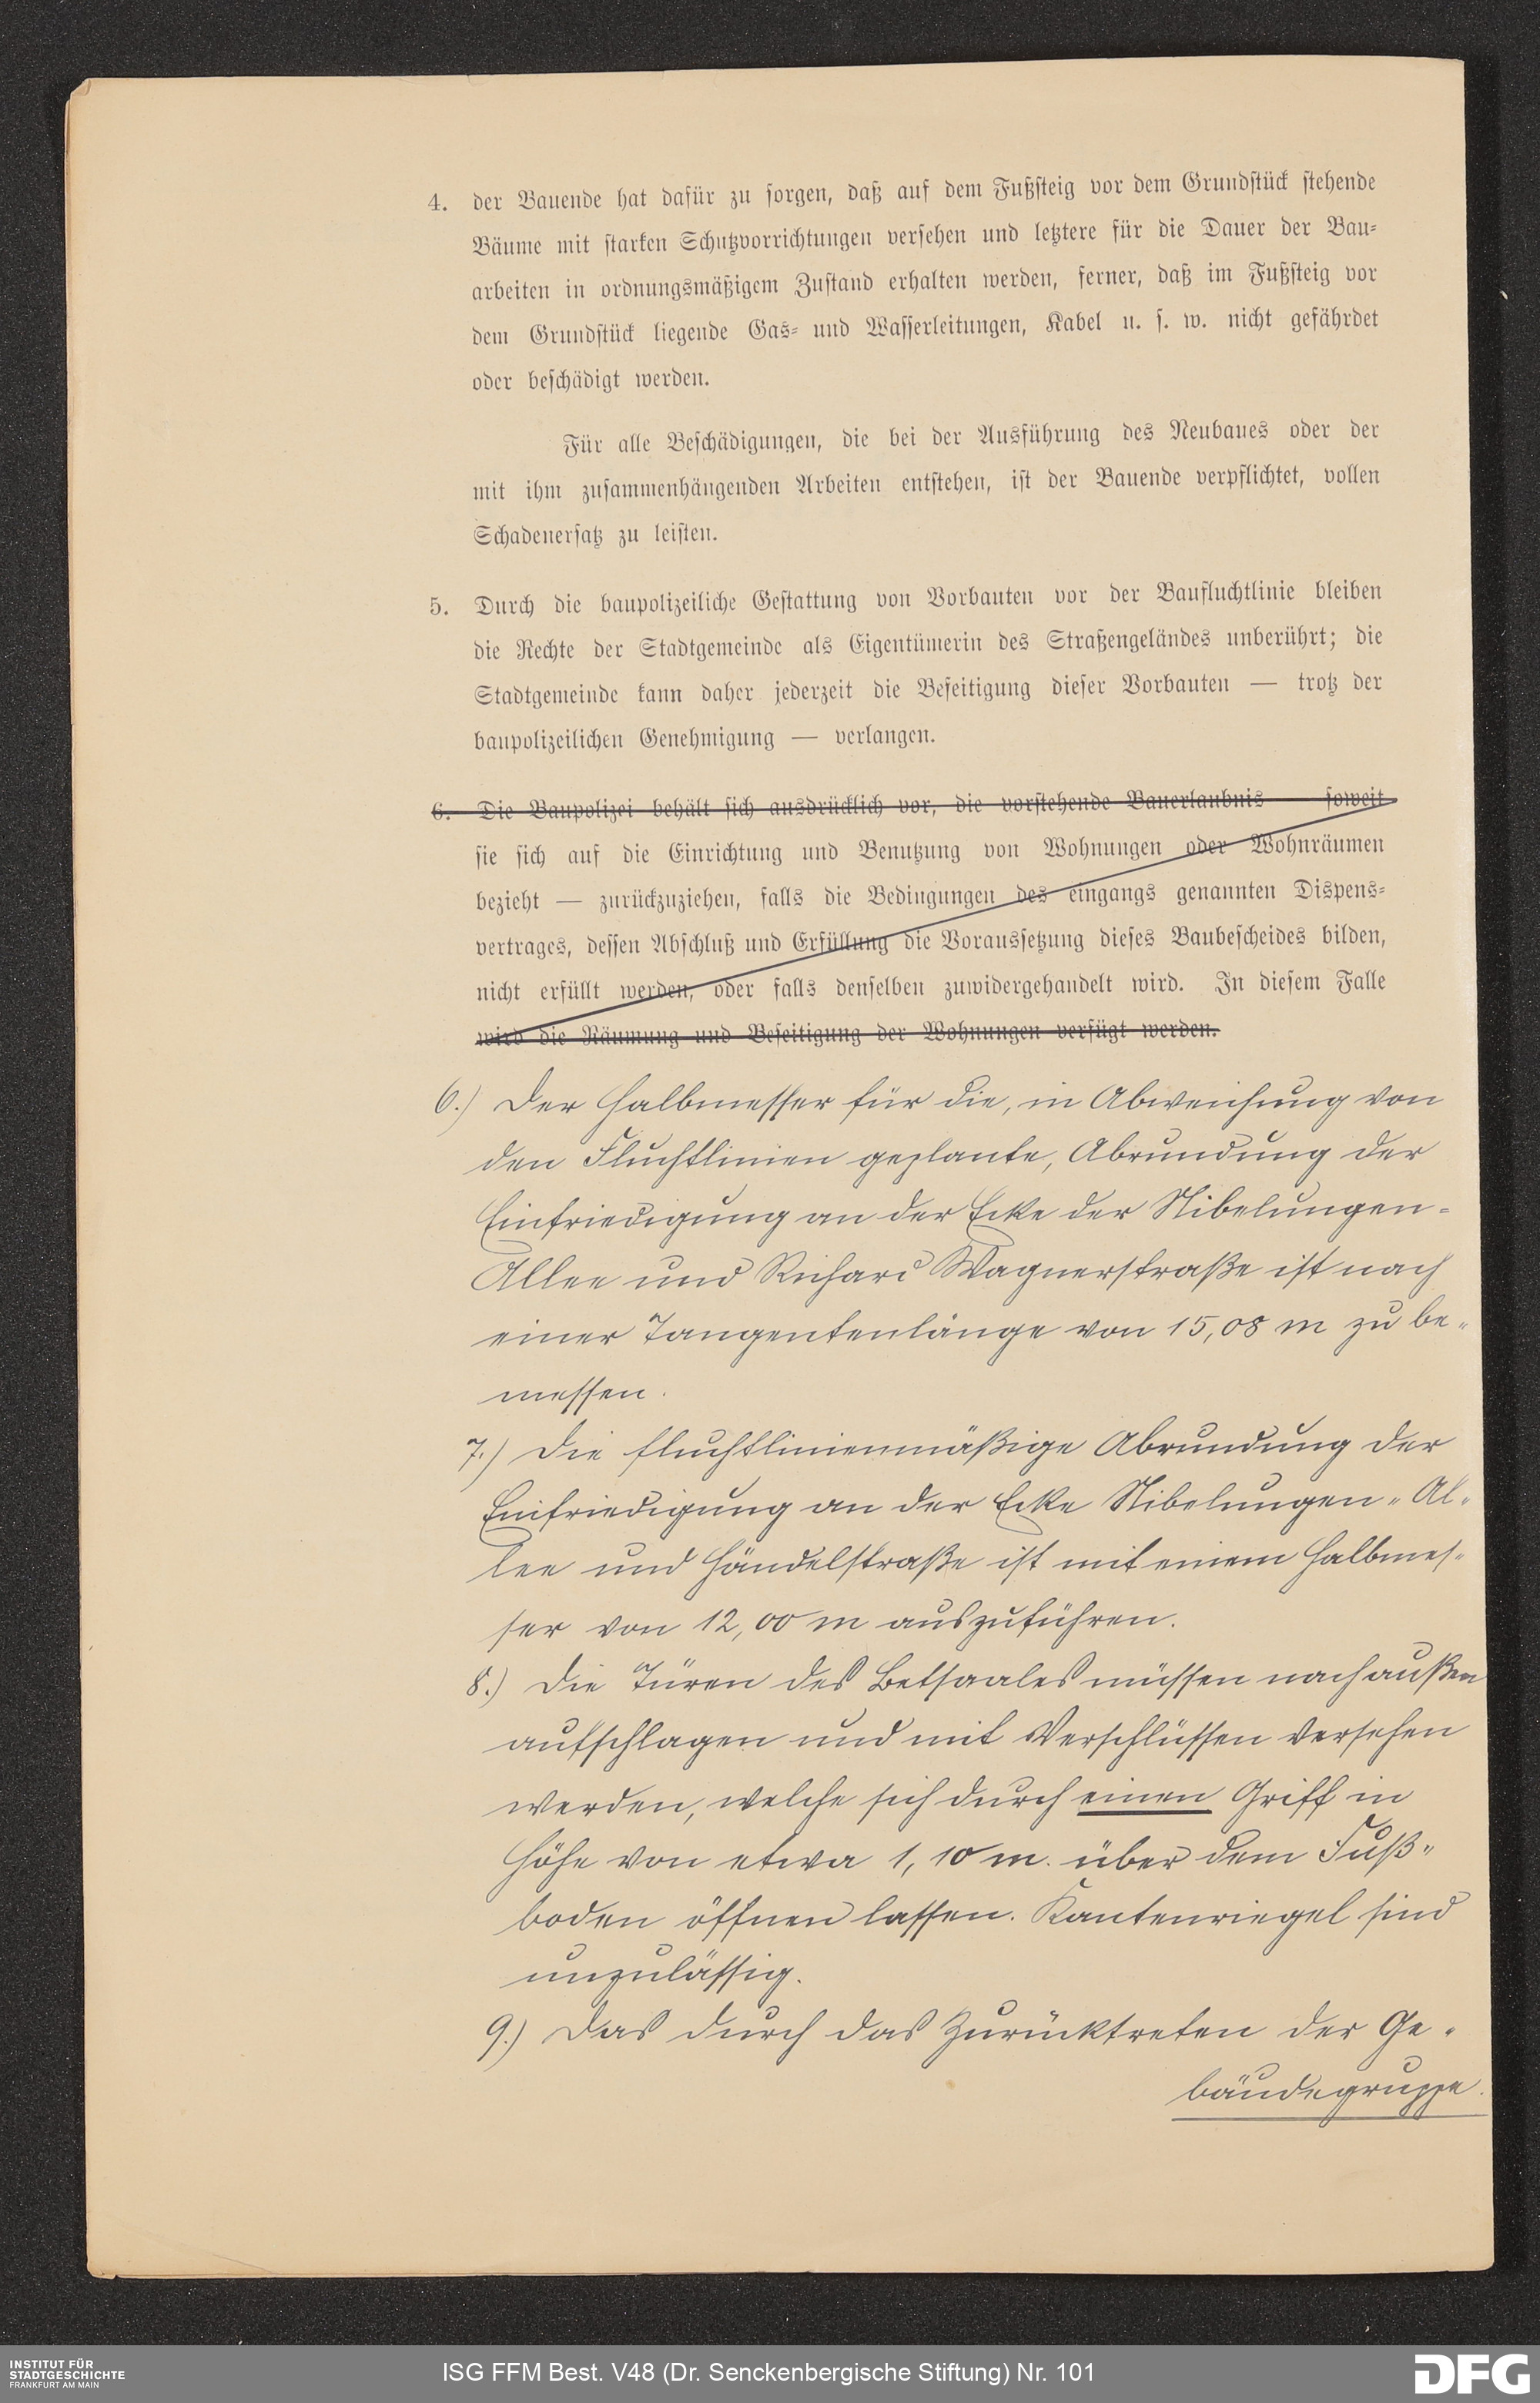 4. der Bauende hat dafür zu sorgen, daß auf dem Fußsteig vor dem Grundstück stehende
Bäume mit starken Schutzvorrichtungen versehen und letztere für die Dauer der Bau-
arbeiten in ordnungsmäßigem Zustand erhalten werden, ferner, daß im Fußsteig vor
dem Grundstück liegende Gas- und Wasserleitungen, Kabel u. s. w. nicht gefährdet
oder beschädigt werden.
Für alle Beschädigungen, die bei der Ausführung des Neubaues oder der
mit ihm zusammenhängenden Arbeiten entstehen, ist der Bauende verpflichtet, vollen
Schadenersatz zu leisten.
5. Durch die baupolizeiliche Gestattung von Vorbauten vor der Baufluchtlinie bleiben
die Rechte der Stadtgemeinde als Eigentümerin des Straßengeländes unberührt; die
Stadtgemeinde kann daher jederzeit die Beseitigung dieser Vorbauten — trotz der
baupolizeilichen Genehmigung — verlangen.
6. Die Baupolizei behält sich ausdrücklich vor, die vorstehende Bauerlaubnis — soweit
sie sich auf die Einrichtung und Benutzung von Wohnungen oder Wohnräumen
bezieht — zurückzuziehen, falls die Bedingungen des eingangs genannten Dispens-
vertrages, dessen Abschluß und Erfüllung die Voraussetzung dieses Baubescheides bilden,
nicht erfüllt werden, oder falls denselben zuwidergehandelt wird. In diesem Falle
wird die Räumung und Beseitigung der Wohnungen verfügt werden.
6.) Der Halbmesser für die, in Abweichung von
den Fluchtlinien geplante, Abrundung der
Einfriedigung an der Ecke der Nibelungen-
Allee und Richard Wagnerstraße ist nach
einer Tangentenlänge von 15,08 m zu be-
messen.
7.) Die fluchtlinienmäßige Abrundung der
Einfriedigung an der Ecke Nibelungen-Al-
lee und Händelstraße ist mit einem Halbmes-
ser von 12,00 m auszuführen.
8.) Die Türen des Betsaales müssen nach außen
aufschlagen und mit Verschlüssen versehen
werden, welche sich durch einen Griff in
Höhe von etwa 1,10 m. über dem Fuß-
boden öffnen lassen. Kantenriegel sind
unzulässig.
9.) Das durch das Zurücktreten der Ge-
bäudegruppe.
INSTITUT FÜR
STADTGESCHICHTE
FRANKFURT AM MAIN
ISG FFM Best. V48 (Dr. Senckenbergische Stiftung) Nr. 101
DFG